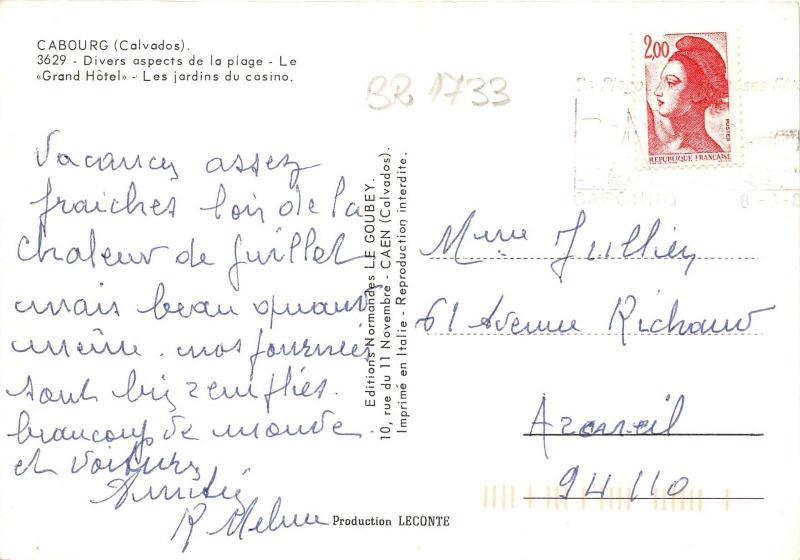 CABOURG (Calvados).
3629 - Divers aspects de la plage - Le
«Grand Hôtel» - Les jardins du casino.
BR 1733
2,00
POSTES
REPUBLIQUE FRANÇAISE
CABOURG
Vacances assez
fraiches loin de la
chaleur de Juillet
mais beau quand
même. nos journées
sont biz remplies.
beaucoup de monde
et voitures
Amitiés
R
Editions Normandes LE GOUBEY.
10, rue du 11 Novembre - CAEN (Calvados).
Imprimé en Italie - Reproduction interdite.
Production LECONTE
Mme Jullien
61 Avenue Richaud
Arcueil
94110